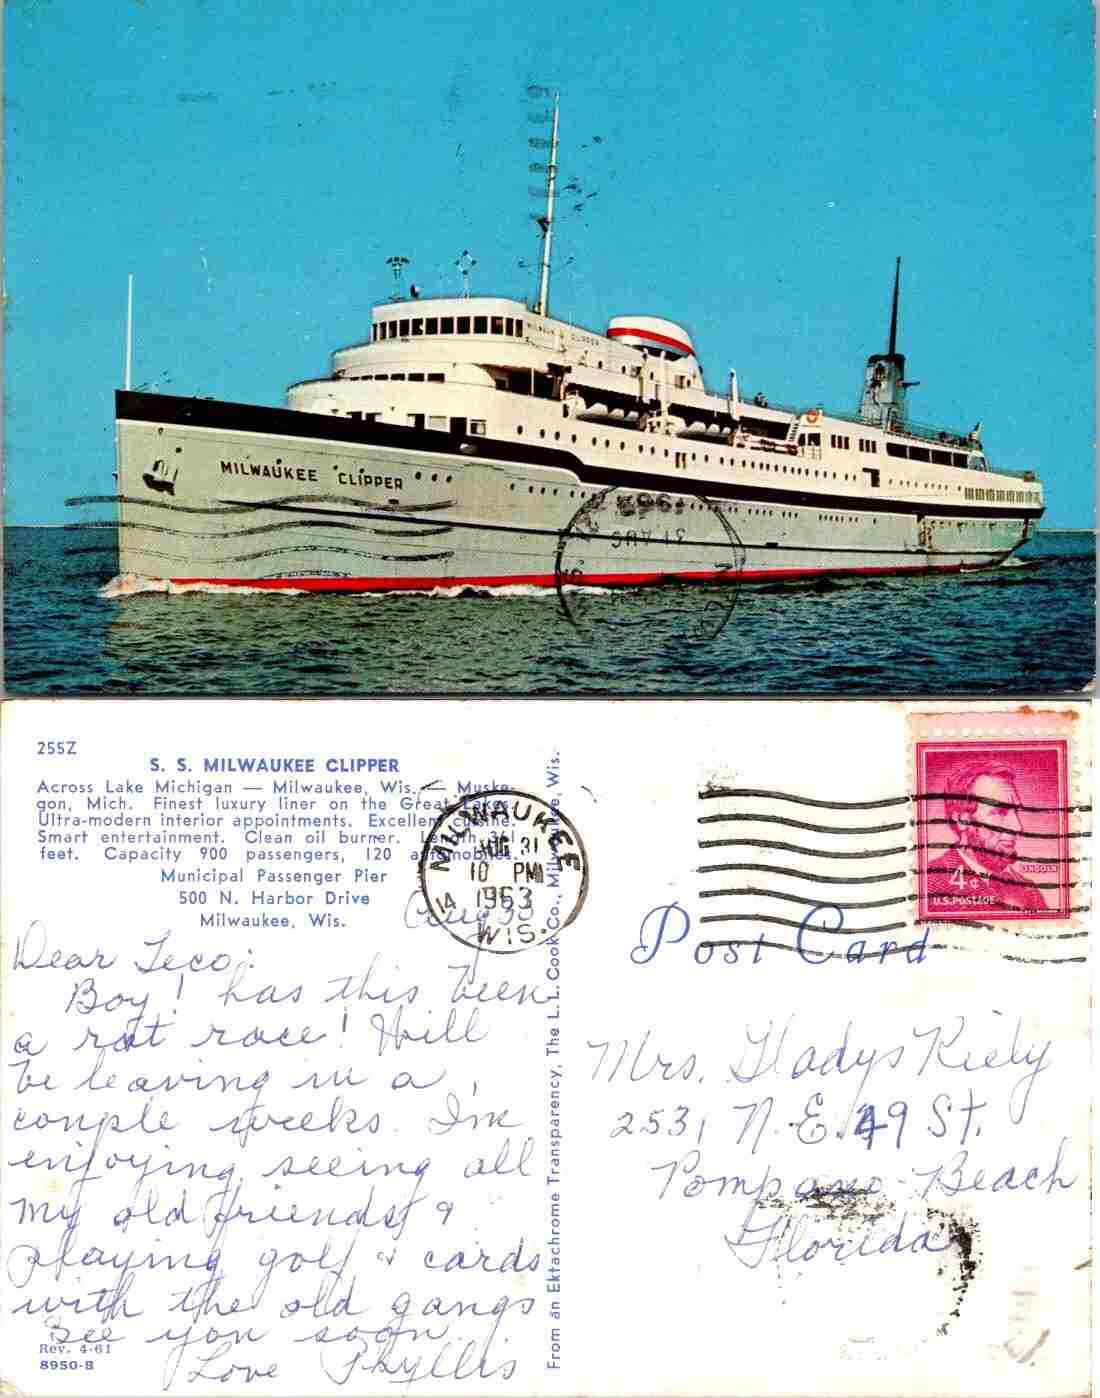 MILWAUKEE CLIPPER
MILWAUKEE CLIPPER
31 AUG
1963
255Z
S. S. MILWAUKEE CLIPPER
Across Lake Michigan — Milwaukee, Wis. — Muske-
gon, Mich. Finest luxury liner on the Great Lakes.
Ultra-modern interior appointments. Excellent cuisine.
Smart entertainment. Clean oil burner. Length 361
feet. Capacity 900 passengers, 120 automobiles.
Municipal Passenger Pier
500 N. Harbor Drive
Milwaukee, Wis.
MILWAUKEE
AUG 31
10 PM
1963
14
WIS.
LINCOLN
4¢
U.S. POSTAGE
Post Card
Aug 30
Dear Teco:
Boy! has this been
a rat race! Will
be leaving in a
couple weeks. I'm
enjoying seeing all
my old friends &
playing golf & cards
with the old gangs
See you soon
Love Phyllis
Rev. 4-61
8950-B
From an Ektachrome Transparency, The L. L. Cook Co., Milwaukee, Wis.
Mrs. Gladys Kiely
2531 N.E. 49 St.
Pompano Beach
Florida